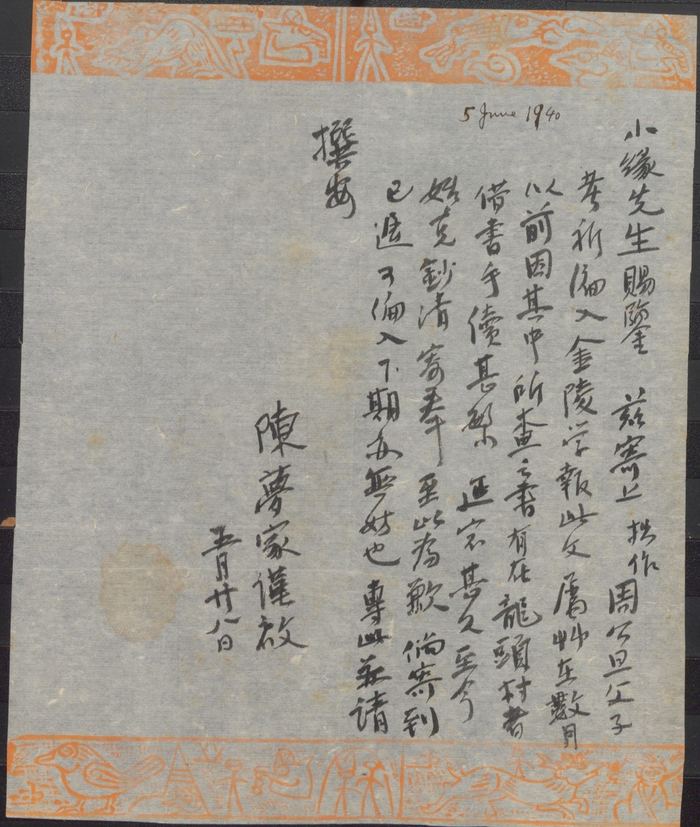 5 June 1940
小緣先生賜鑒 茲寄上 拙作周公旦父子
考祈編入金陵学報此文屬艸在數月
以前因其中所查之書有在龍頭村者
借書手續甚繁 延宕甚久至今
始克鈔清寄奉 至此為歉 倘寄到
已遲可編入下期亦無妨也 專此敬請
撰安
陳夢家謹啟
五月廿八日